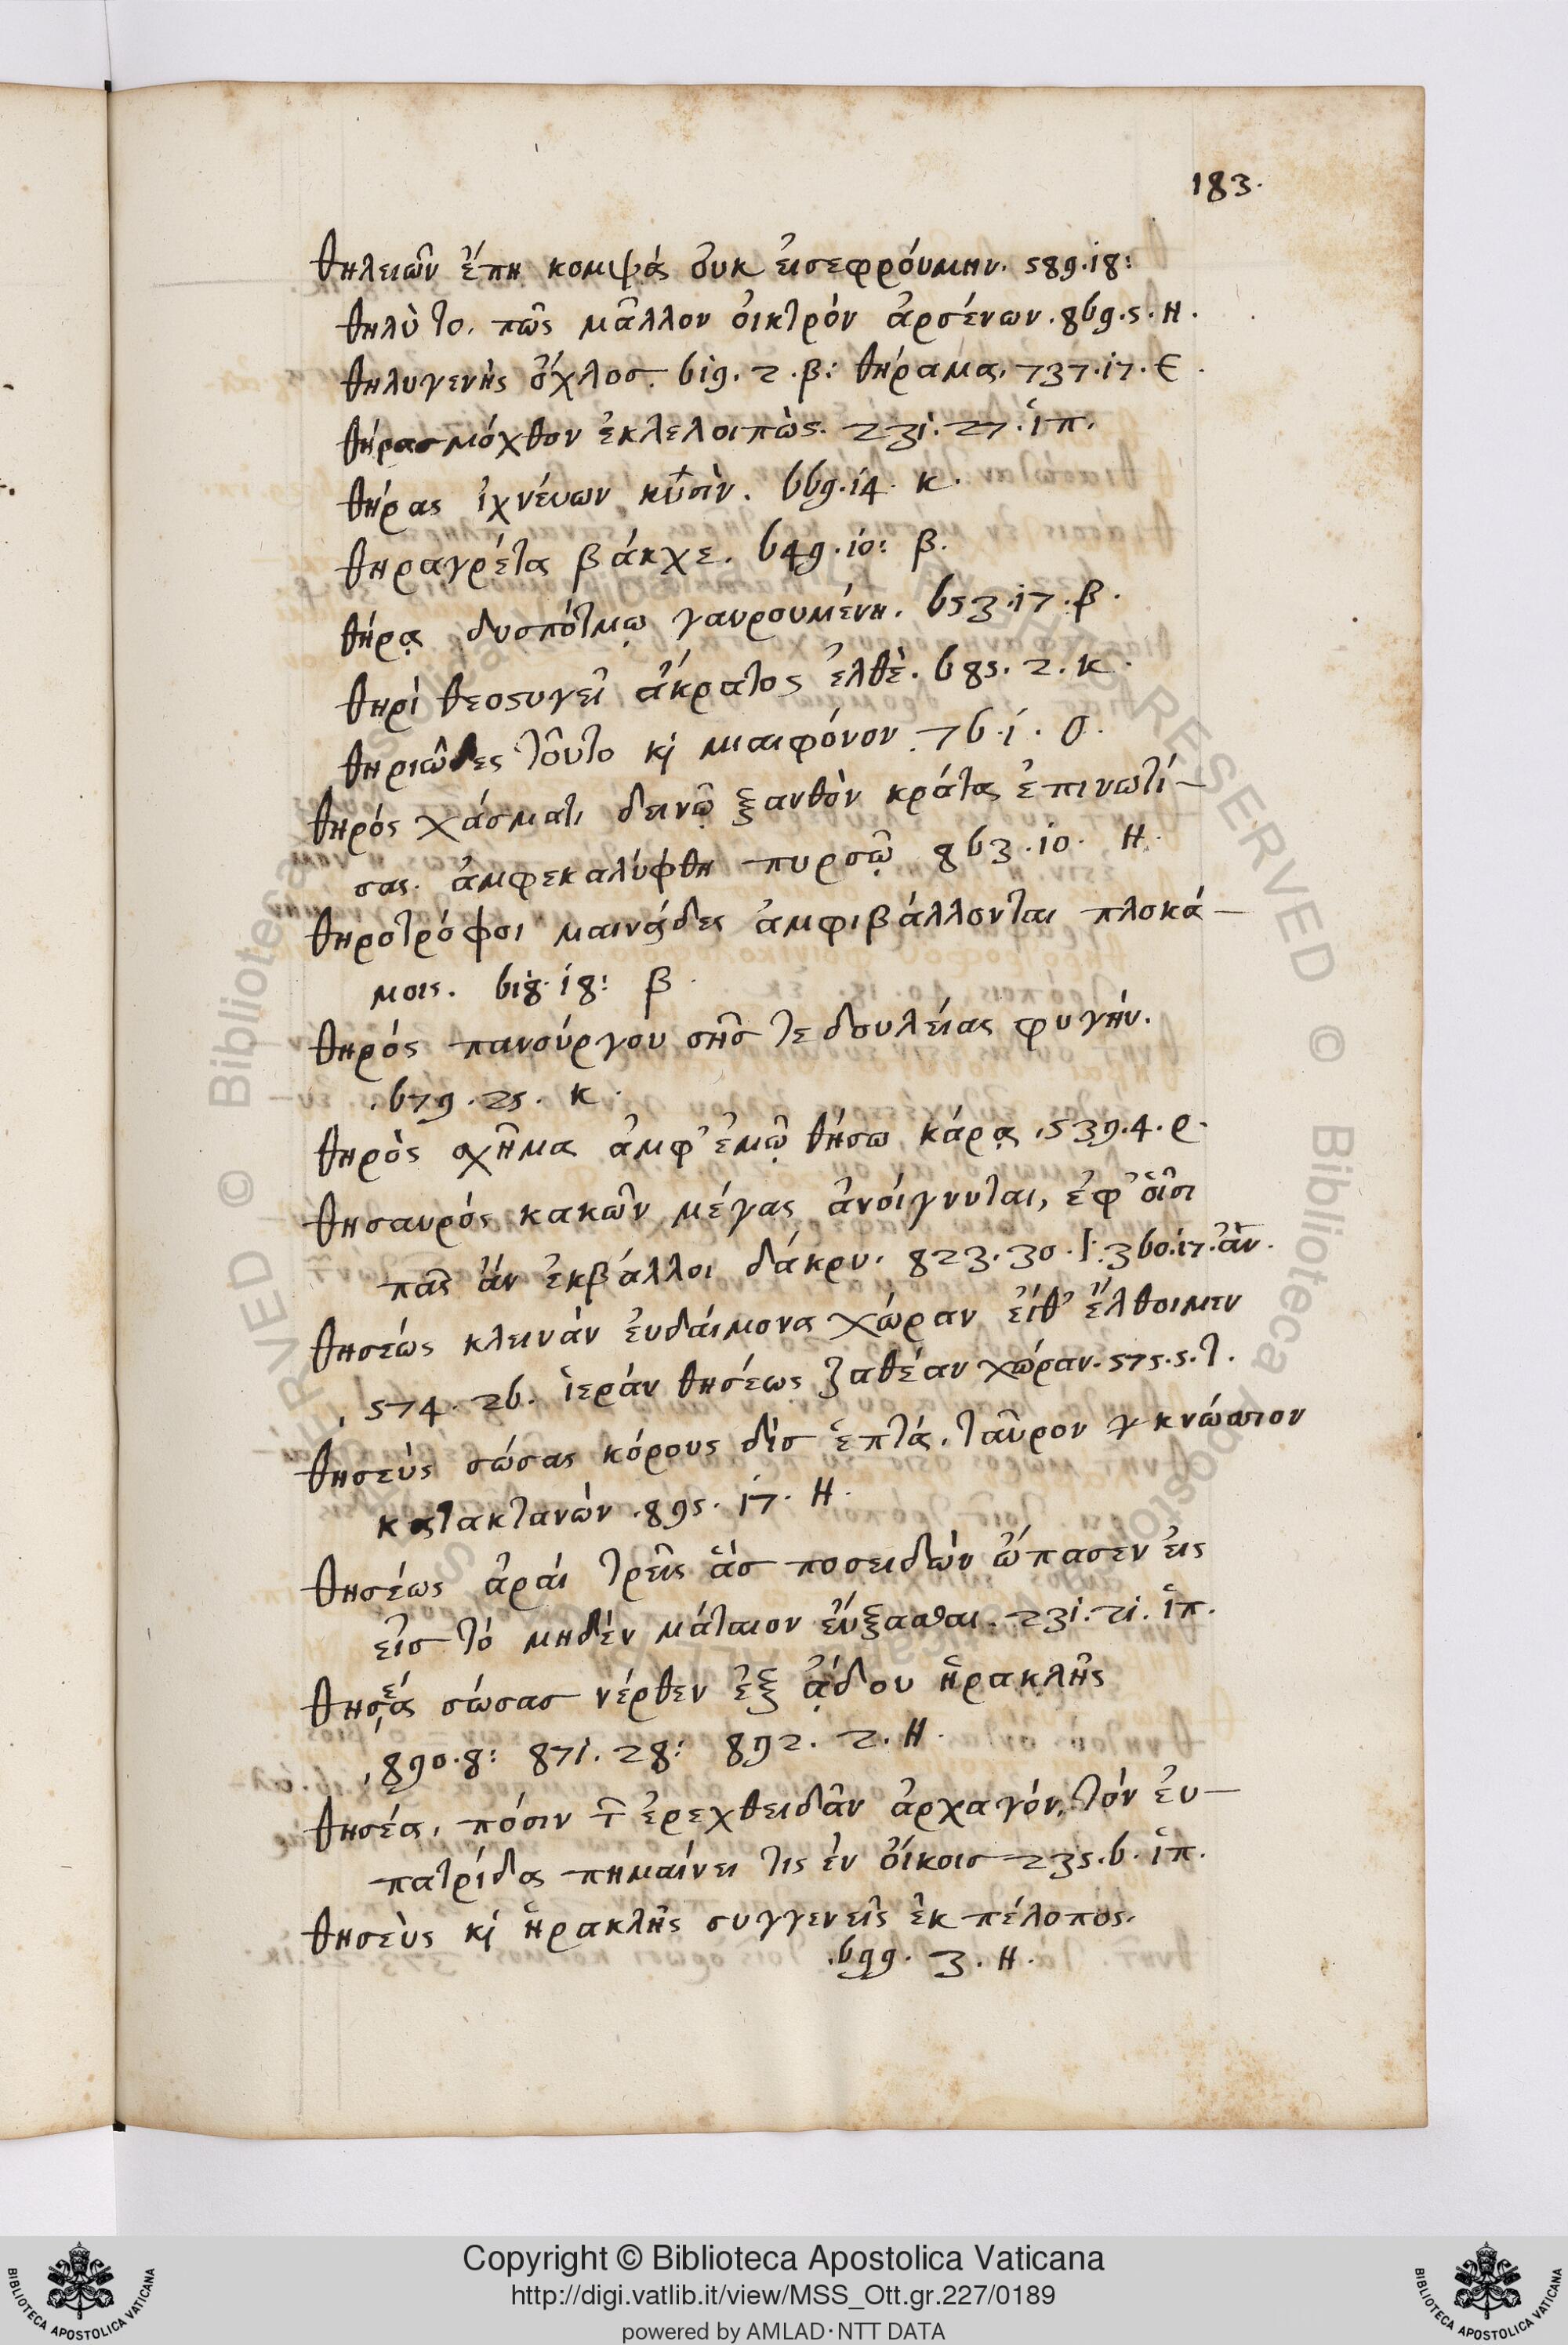 183.
θηλειῶν ἔπη κομψά οὐκ εἰσεφρούμην. 589.18:
θηλὺ το. πῶς μᾶλλον οἰκτρόν ἀρσένων. 869.5. Η.
θηλυγενὴς ὄχλος. 619. 2. β: θήραμα. 737.17. Ε.
θήρας μόχθον ἐκλελοιπὼς. 231. 27. ἱπ.
θήρας ἰχνεύων κυσὶν. 669.14. κ.
θηραγρέτα βάκχε. 649.10: β.
θήρᾳ δυσπότμῳ γαυρουμένη. 653.17. β.
θηρὶ θεοςυγεῖ ἄκρατος ἐλθὲ. 685. 2. κ.
θηριῶδες τοῦτο κὶ μιαιφόνον. 76. 1. Ο.
θηρός χάσματι δεινῷ ξανθὸν κράτα ἐπινωτί-
σας. ἀμφεκαλύφθη πυρσῷ 863. 10. Η.
θηροτρόφοι μαινάδες ἀμφιβάλλονται πλοκά-
μοις. 618. 18: β.
θηρός πανούργου σῆς τε δουλείας φυγήν.
. 679. 25. κ.
θηρὸς σχῆμα ἀμφ' ἐμῷ θήσω κάρᾳ. 539. 4. ρ.
θησαυρός κακῶν μέγας ἀνοίγνυται, ἐφ' οἷσι
πᾶς ἄν ἐκβάλλοι δάκρυ. 823. 30. Ι. 360.17. ἂν.
θησέως κλεινάν εὐδαίμονα χώραν εἴθ' ἔλθοιμεν
, 574. 26. ἱεράν θησέως ζαθέαν χώραν. 575. 5. τ.
θησεὺς σώσας κόρους δὶς ἑπτά. ταῦρον κνώσσιον
κατακτανὼν. 895. 17. Η.
θησέως ἀραί τρεῖς ἃς ποσειδῶν ὤπασεν εἰς
εἷς τό μηδὲν μάταιον εὔξασθαι. 231. 21. ἱπ.
θησέα σώσας νέρθεν ἐξ ᾅδου ἡρακλῆς
, 890. 8: 871. 28: 892. 2. Η.
θησέα, πόσιν τ͂ ἐρεχθειδᾶν ἀρχαγόν, τόν εὐ-
πατρίδα πημαίνει τις ἐν οἴκοις 235. 6. ἱπ.
θησεὺς κὶ ἡρακλῆς συγγενεῖς ἐκ πέλοπος.
. 699. 3. Η.
Copyright © Biblioteca Apostolica Vaticana
http://digi.vatlib.it/view/MSS_Ott.gr.227/0189
powered by AMLAD·NTT DATA
BIBLIOTECA APOSTOLICA VATICANA
BIBLIOTECA APOSTOLICA VATICANA